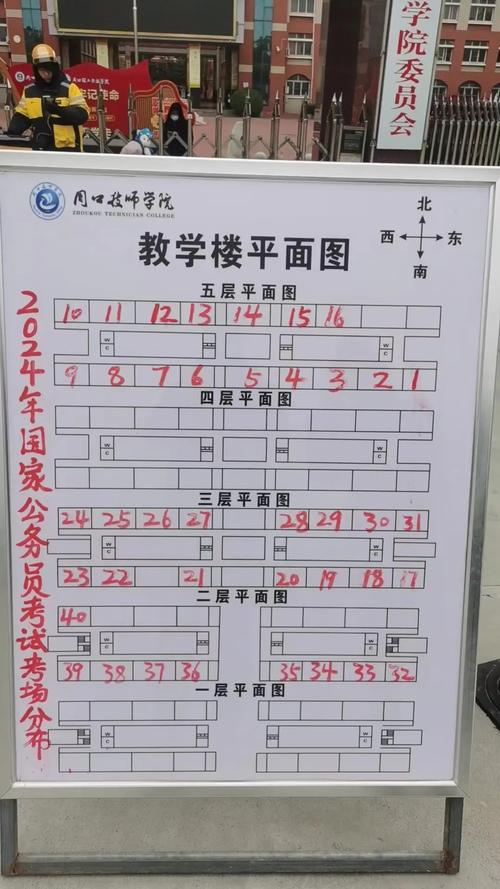 学院委员会
周口技师学院
ZHOUKOU TECHNICIAN COLLEGE
北
西 东
南
教学楼平面图
2024年国家公务员考试考场分布
五层平面图
10 11 12 13 14 15 16
W C W C
9 8 7 6 5 4 3 2 1
四层平面图
W C W C
三层平面图
24 25 26 27 28 29 30 31
W C W C
23 22 21 20 19 18 17
二层平面图
40
W C W C
39 38 37 36 35 34 33 32
一层平面图
W C W C